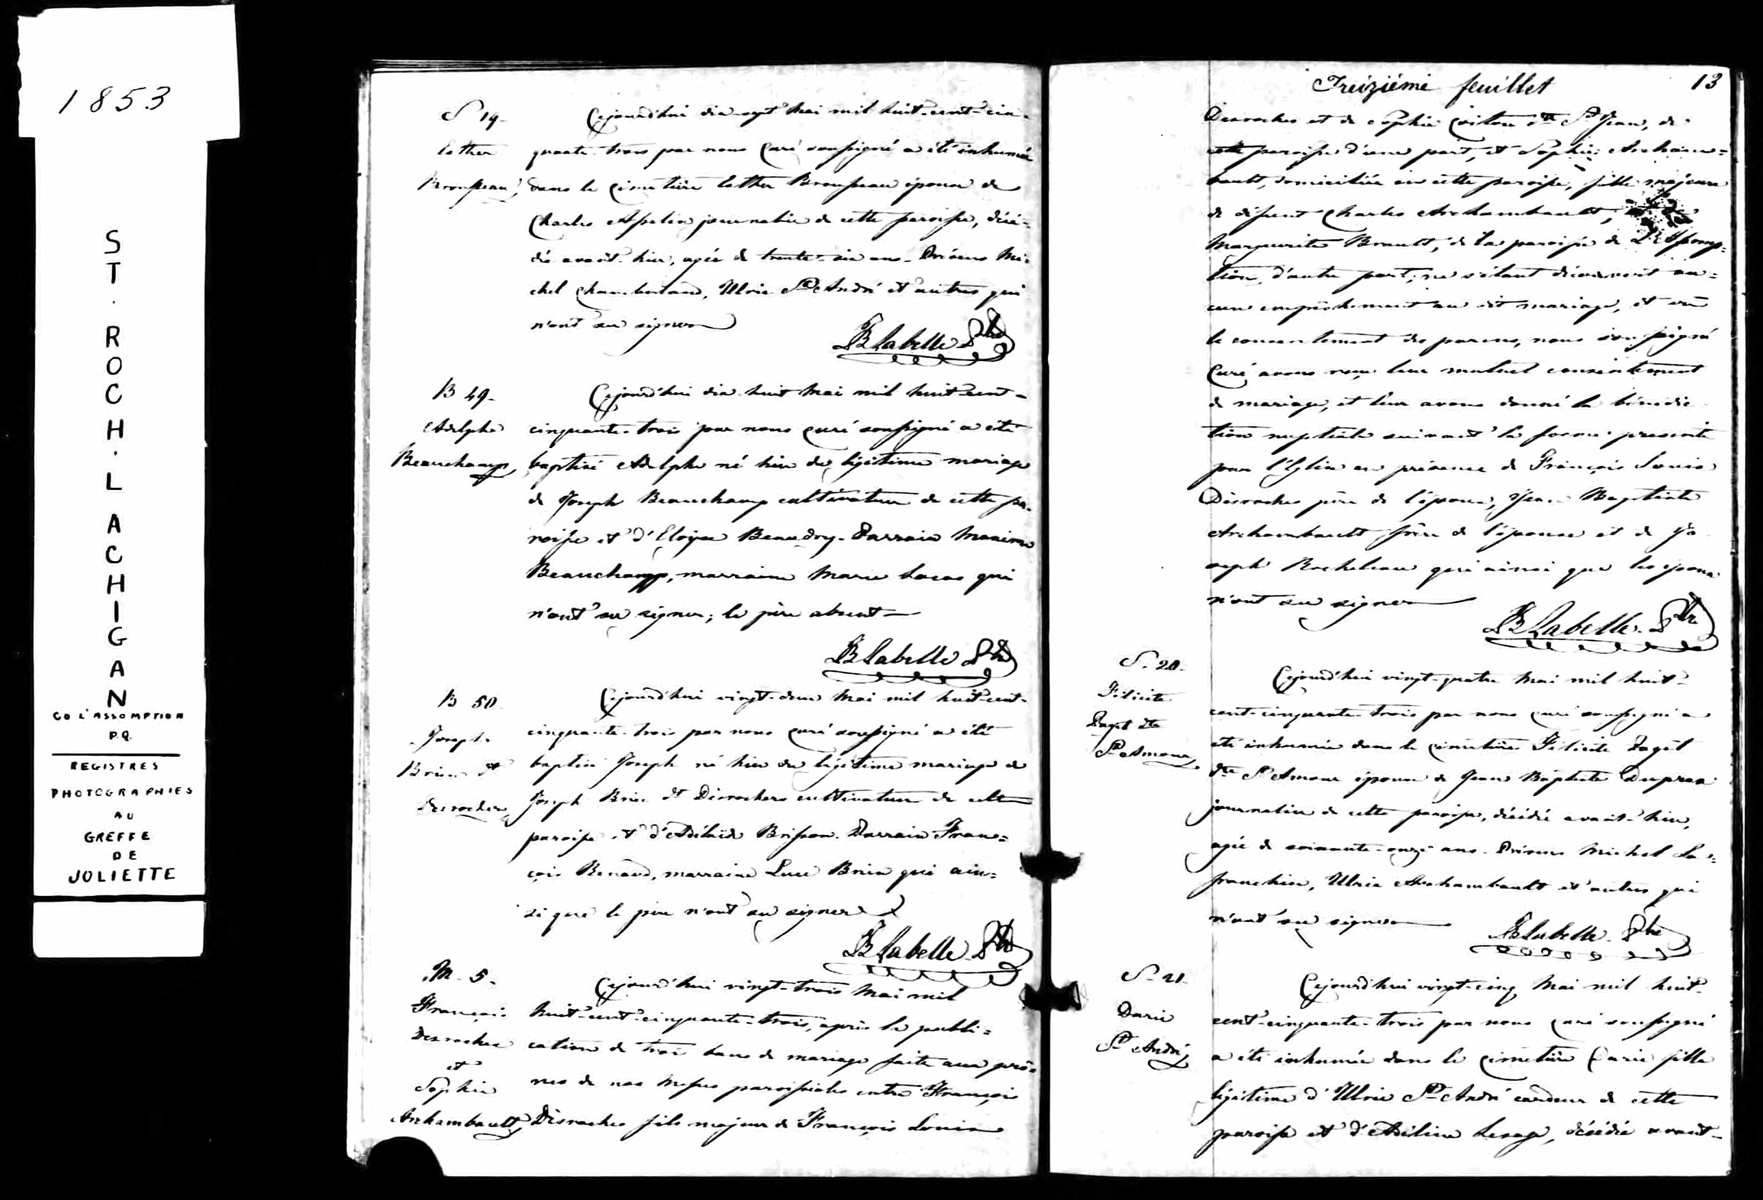 1853
ST. ROCH. LACHIGAN
CO L'ASSOMPTION
P.Q.
REGISTRES
PHOTOGRAPHIES
AU
GREFFE
DE
JOLIETTE
S 19-
Esther
Brousseau
Cejourd'hui dix-sept Mai mil huit-cent-cin-
quante-trois par nous Curé soussigné a été inhumée
dans le cimetière Esther Brousseau épouse de
Charles Asselin journalier de cette paroisse, décé-
dée avant-hier, agée de trente-six ans- Présens Mi-
chel Chamberland, Ulric St André et autres qui
n'ont su signer
JB Labelle Ptre
B 49-
Adolphe
Beauchamp
Cejourd'hui dix-huit Mai mil huit-cent-
cinquante-trois par nous curé soussigné a été
baptisé Adolphe né hier du légitime mariage
de Joseph Beauchamp cultivateur de cette pa-
roisse et d'Eloïse Beaudry- Parrain Maxime
Beauchamp, marraine Marie Lacas qui
n'ont su signer; le père absent-
JB Labelle Ptre
B 50
Joseph
Brien dt
Desrochers
Cejourd'hui vingt-deux Mai mil huit-cent-
cinquante-trois par nous curé soussigné a été
baptisé Joseph né hier du légitime mariage de
Joseph Brien dt Desrochers cultivateur de cette
paroisse et d'Adélaïde Brisson. Parrain Fran=
çois Renaud, marraine Luce Brien qui ain=
si que le père n'ont su signer
JB Labelle Ptre
M- 5-
François
Desroches
et
Sophie
Archambault
Cejourd'hui vingt-trois Mai mil
huit-cent-cinquante-trois, après la publi=
cation de trois bans de mariage faite aux prô=
nes de nos Messes paroissiales entre François
Desroches fils majeur de François Louis
Treizième feuillet 13
Desroches et de Sophie Coitou dt St Jean, de
cette paroisse d'une part, et Sophie Archam=
bault, domiciliée en cette paroisse, fille majeure
de défunt Charles Archambault, et de
Marguerite Brault, de la paroisse de L'Assomp-
tion, d'autre part; ne s'étant découvert au=
cun empêchement au dit mariage, et vu
le consentement des parens, nous soussigné
Curé avons reçu leur mutuel consentement
de mariage, et leur avons donné la bénédic-
tion nuptiale suivant la forme prescrite
par l'Eglise en présence de François Louis
Desroches père de l'époux, Jean Baptiste
Archambault frère de l'épouse et de Jo-
seph Rocheleau qui ainsi que les époux
n'ont su signer
JB Labelle Ptre
S- 20-
Félicité
Paget dte
St Amour
Cejourd'hui vingt-quatre Mai mil huit-
cent-cinquante-trois par nous curé soussigné a
été inhumée dans le cimetière Félicité Paget
dte St Amour épouse de Jean Baptiste Dupras
journalier de cette paroisse, décédée avant-hier,
agée de soixante-onze ans- Présens Michel La=
franchise, Ulric Archambault et autres qui
n'ont su signer
JB Labelle Ptre
S- 21-
Darie
St André
Cejourd'hui vingt-cinq Mai mil huit-
cent-cinquante-trois par nous curé soussigné
a été inhumée dans le cimetière Darie fille
légitime d'Ulric St André cardeur de cette
paroisse et d'Adéline Lesage, décédée avant-